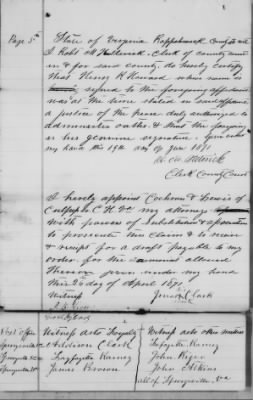 Page 5th
State of Virginia Rappahannock County to wit
I Robt M Heterick Clerk of county court
in & for said county do hereby certify
that Henry R Howard whose name is
signed to the foregoing
was at the time stated in said
a justice of the peace duly authorized to
administer oaths & that the foregoing
is his genuine signature. Given under
my hand this 19th day of June 1871
Clerk County Court
I hereby appoint Cochran & Lewis of
Culpeper C. H. Va my attorneys
with powers of substitution & appearance
to prosecute this claim & to receive
& receipt for a draft payable to my
order for the amount allowed
thereon given under my hand
this 26 day of April 1871
Witness
Clark
Post office
Witness as to Loyalty
Witness as to other matters
Addison Clark
Lafayette Kenney
Lafayette Kenney
John
James Brown
John Atkins
all of Sperryville, Va